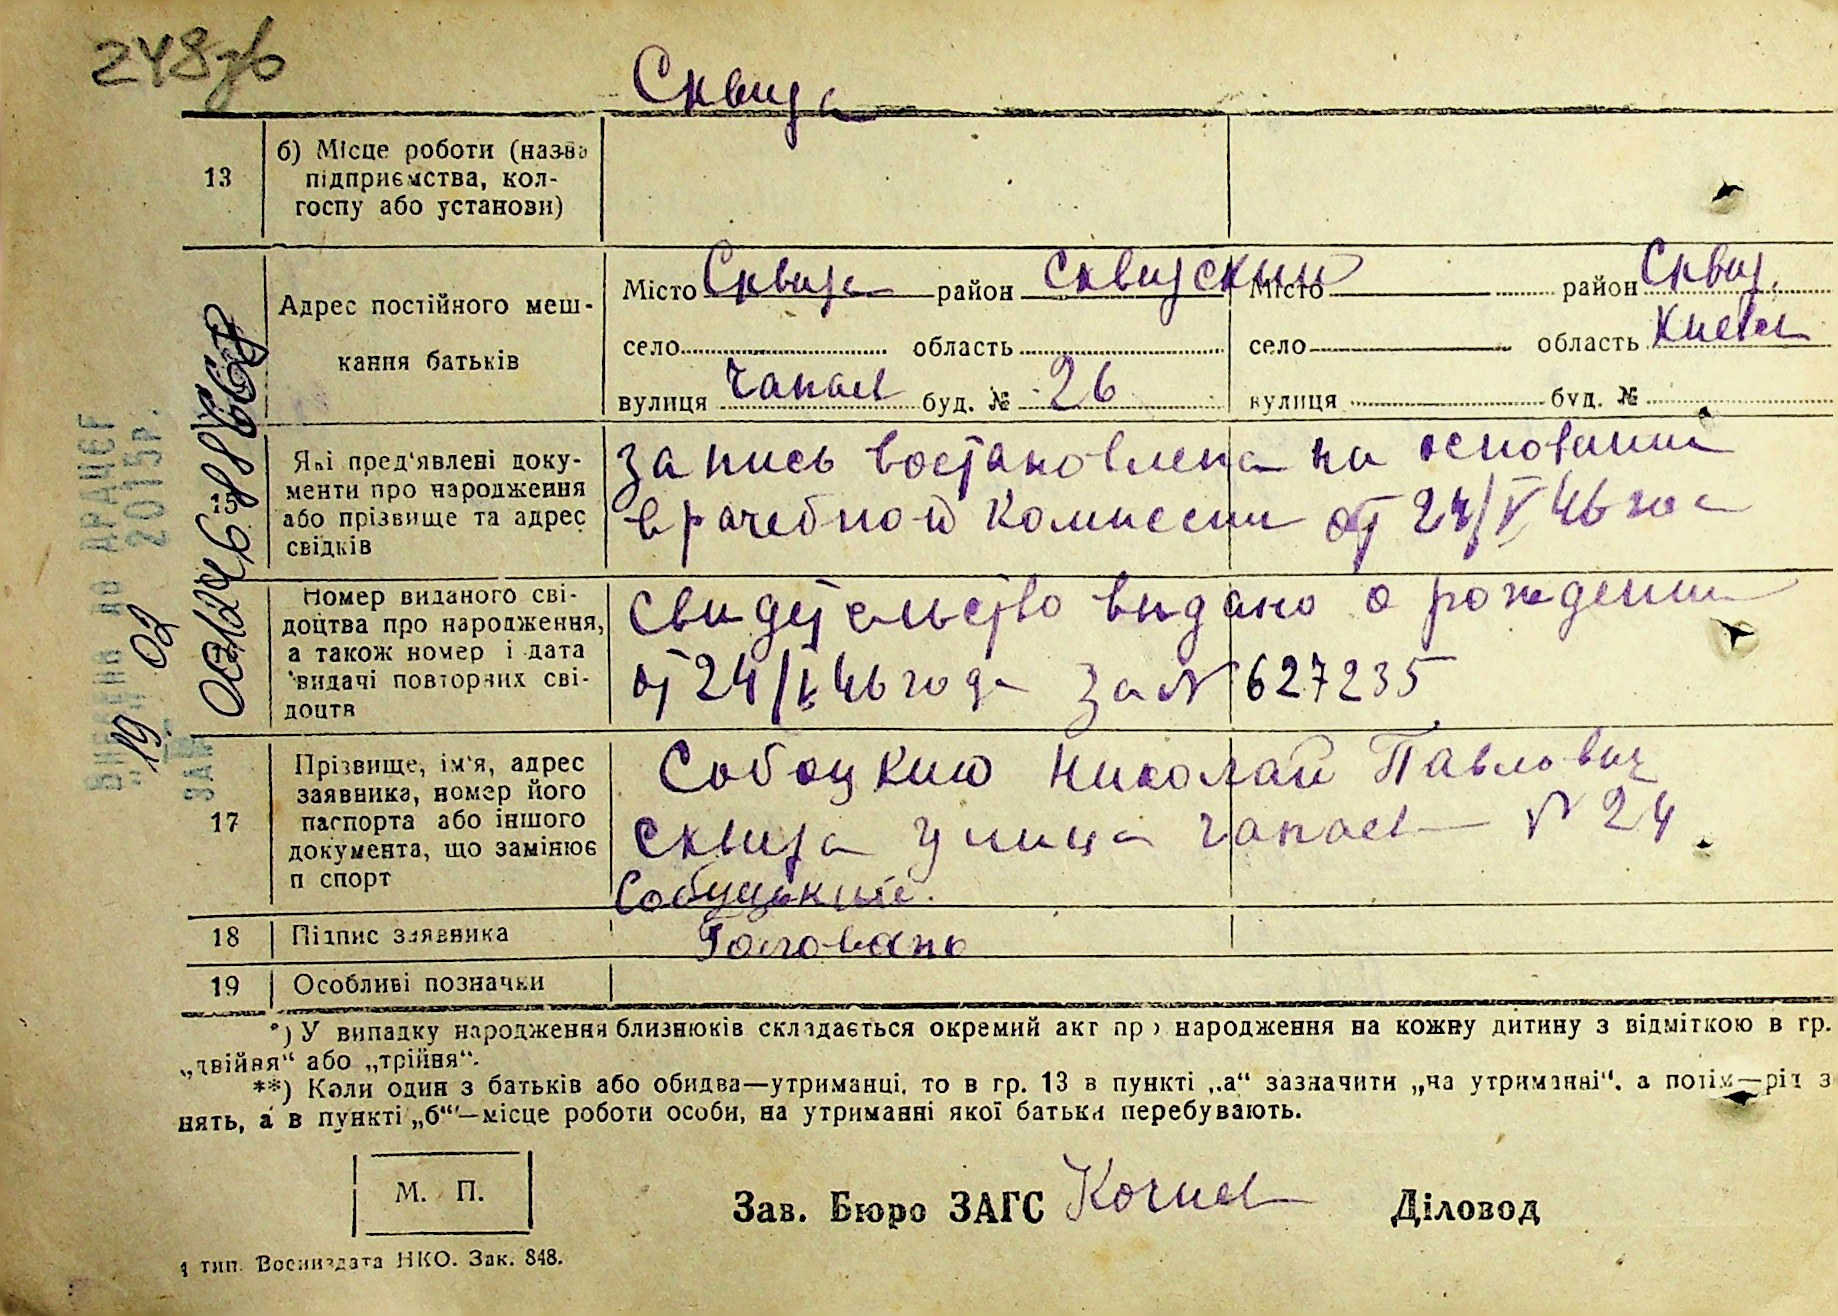 248зв
Сквира
13
б) Місце роботи (назва
підприємства, кол-
госпу або установи)
Адрес постійного меш-
кання батьків
Місто Сквира район Сквирский
село область
вулиця Чапаев буд. № 26
Місто район Сквир.
село область Киевск
вулиця буд. №
15
Які пред'явлені доку-
менти про народження
або прізвище та адрес
свідків
запись востановлена на основании
врачебной комиссии от 24/V 46 года
Номер виданого сві-
доцтва про народження,
а також номер і дата
видачі повторних сві-
доцтв
свидетельство выдано о рождении
от 24/V 46 года за № 627235
17
Прізвище, ім'я, адрес
заявника, номер його
паспорта або іншого
документа, що замінює
п спорт
Собоцкию Николай Павлович
Сквира улица Чапаев № 24
Собуцький.
18 Підпис заявника
19 Особливі позначки
*) У випадку народження близнюків складається окремий акт про народження на кожну дитину з відміткою в гр.
„двійня“ або „трійня“.
**) Коли один з батьків або обидва—утриманці, то в гр. 13 в пункті „а“ зазначити „на утриманні“, а потім—рід з
нять, а в пункті „б“—місце роботи особи, на утриманні якої батьки перебувають.
М. П.
Зав. Бюро ЗАГС Діловод
тип. Воениздата НКО. Зак. 848.
ДРАЦСГ
2015р.
19 02